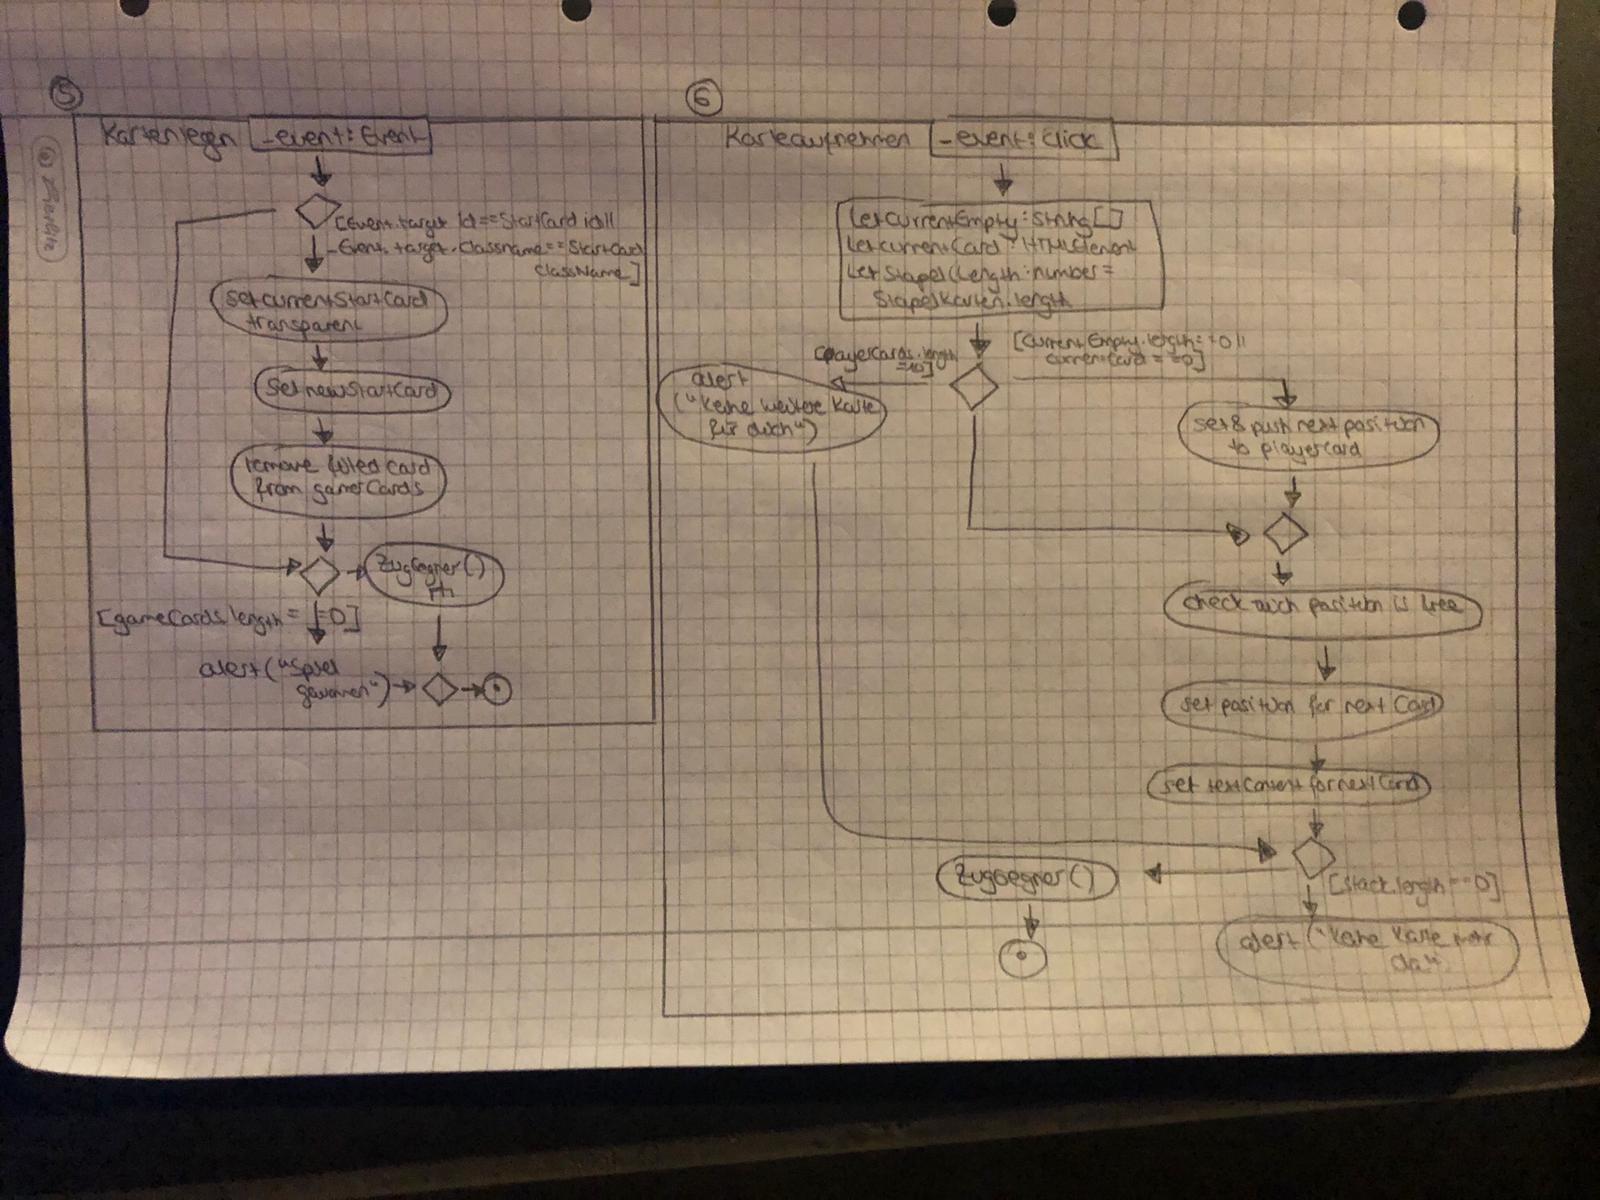 5
Kartenlegen
- event: Event
[Event.target id == StartCard id ||
- Event.target.Classname == StartCard
ClassName]
set currentStartCard
transparent
Set newStartCard
remove card
from gamerCards
ZugGegner()
[gameCards.length == 0]
alert("Spiel
gewonnen")
6
Karteaufnehmen
- event: Click
Let currentEmpty: String []
Let currentCard: HTMLElement
Let Stapel(Length: number =
Stapelkarten.length
[playerCards.length
[currentEmpty.length
currentCard == 0]
alert
("Keine weitere Karte
für dich")
set & push next position
to playerCard
check position is free
set position for next Card
set textContent for next Card
ZugGegner()
[stack.length == 0]
alert ("Keine Karte mehr
da"